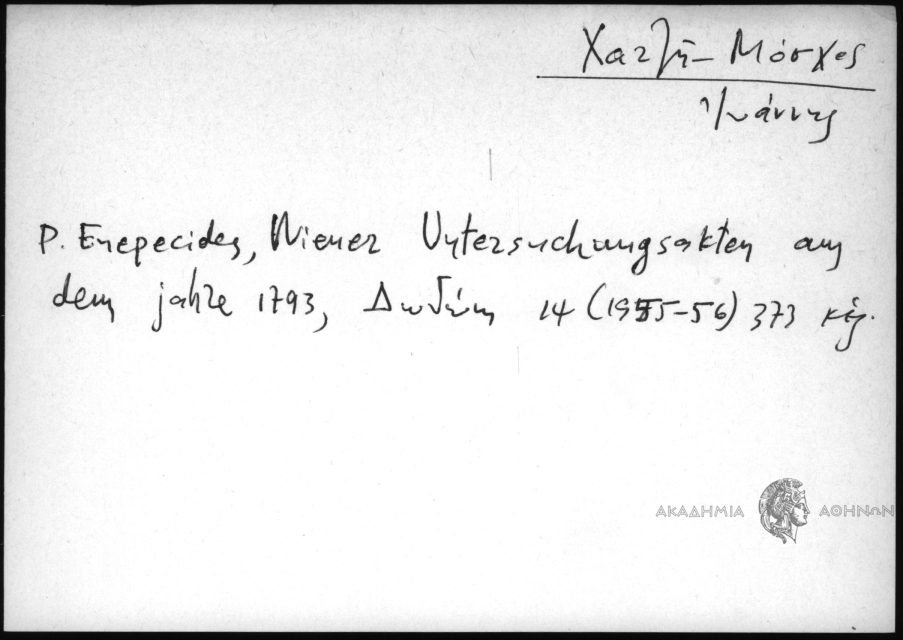 Χατζῆ-Μόσχος
Ἰωάννης
P. Enepecides, Wiener Untersuchungsakten aus
dem jahre 1793, Δωδώνη 14 (1955-56) 373 κἑξ.
ΑΚΑΔΗΜΙΑ ΑΘΗΝΩΝ